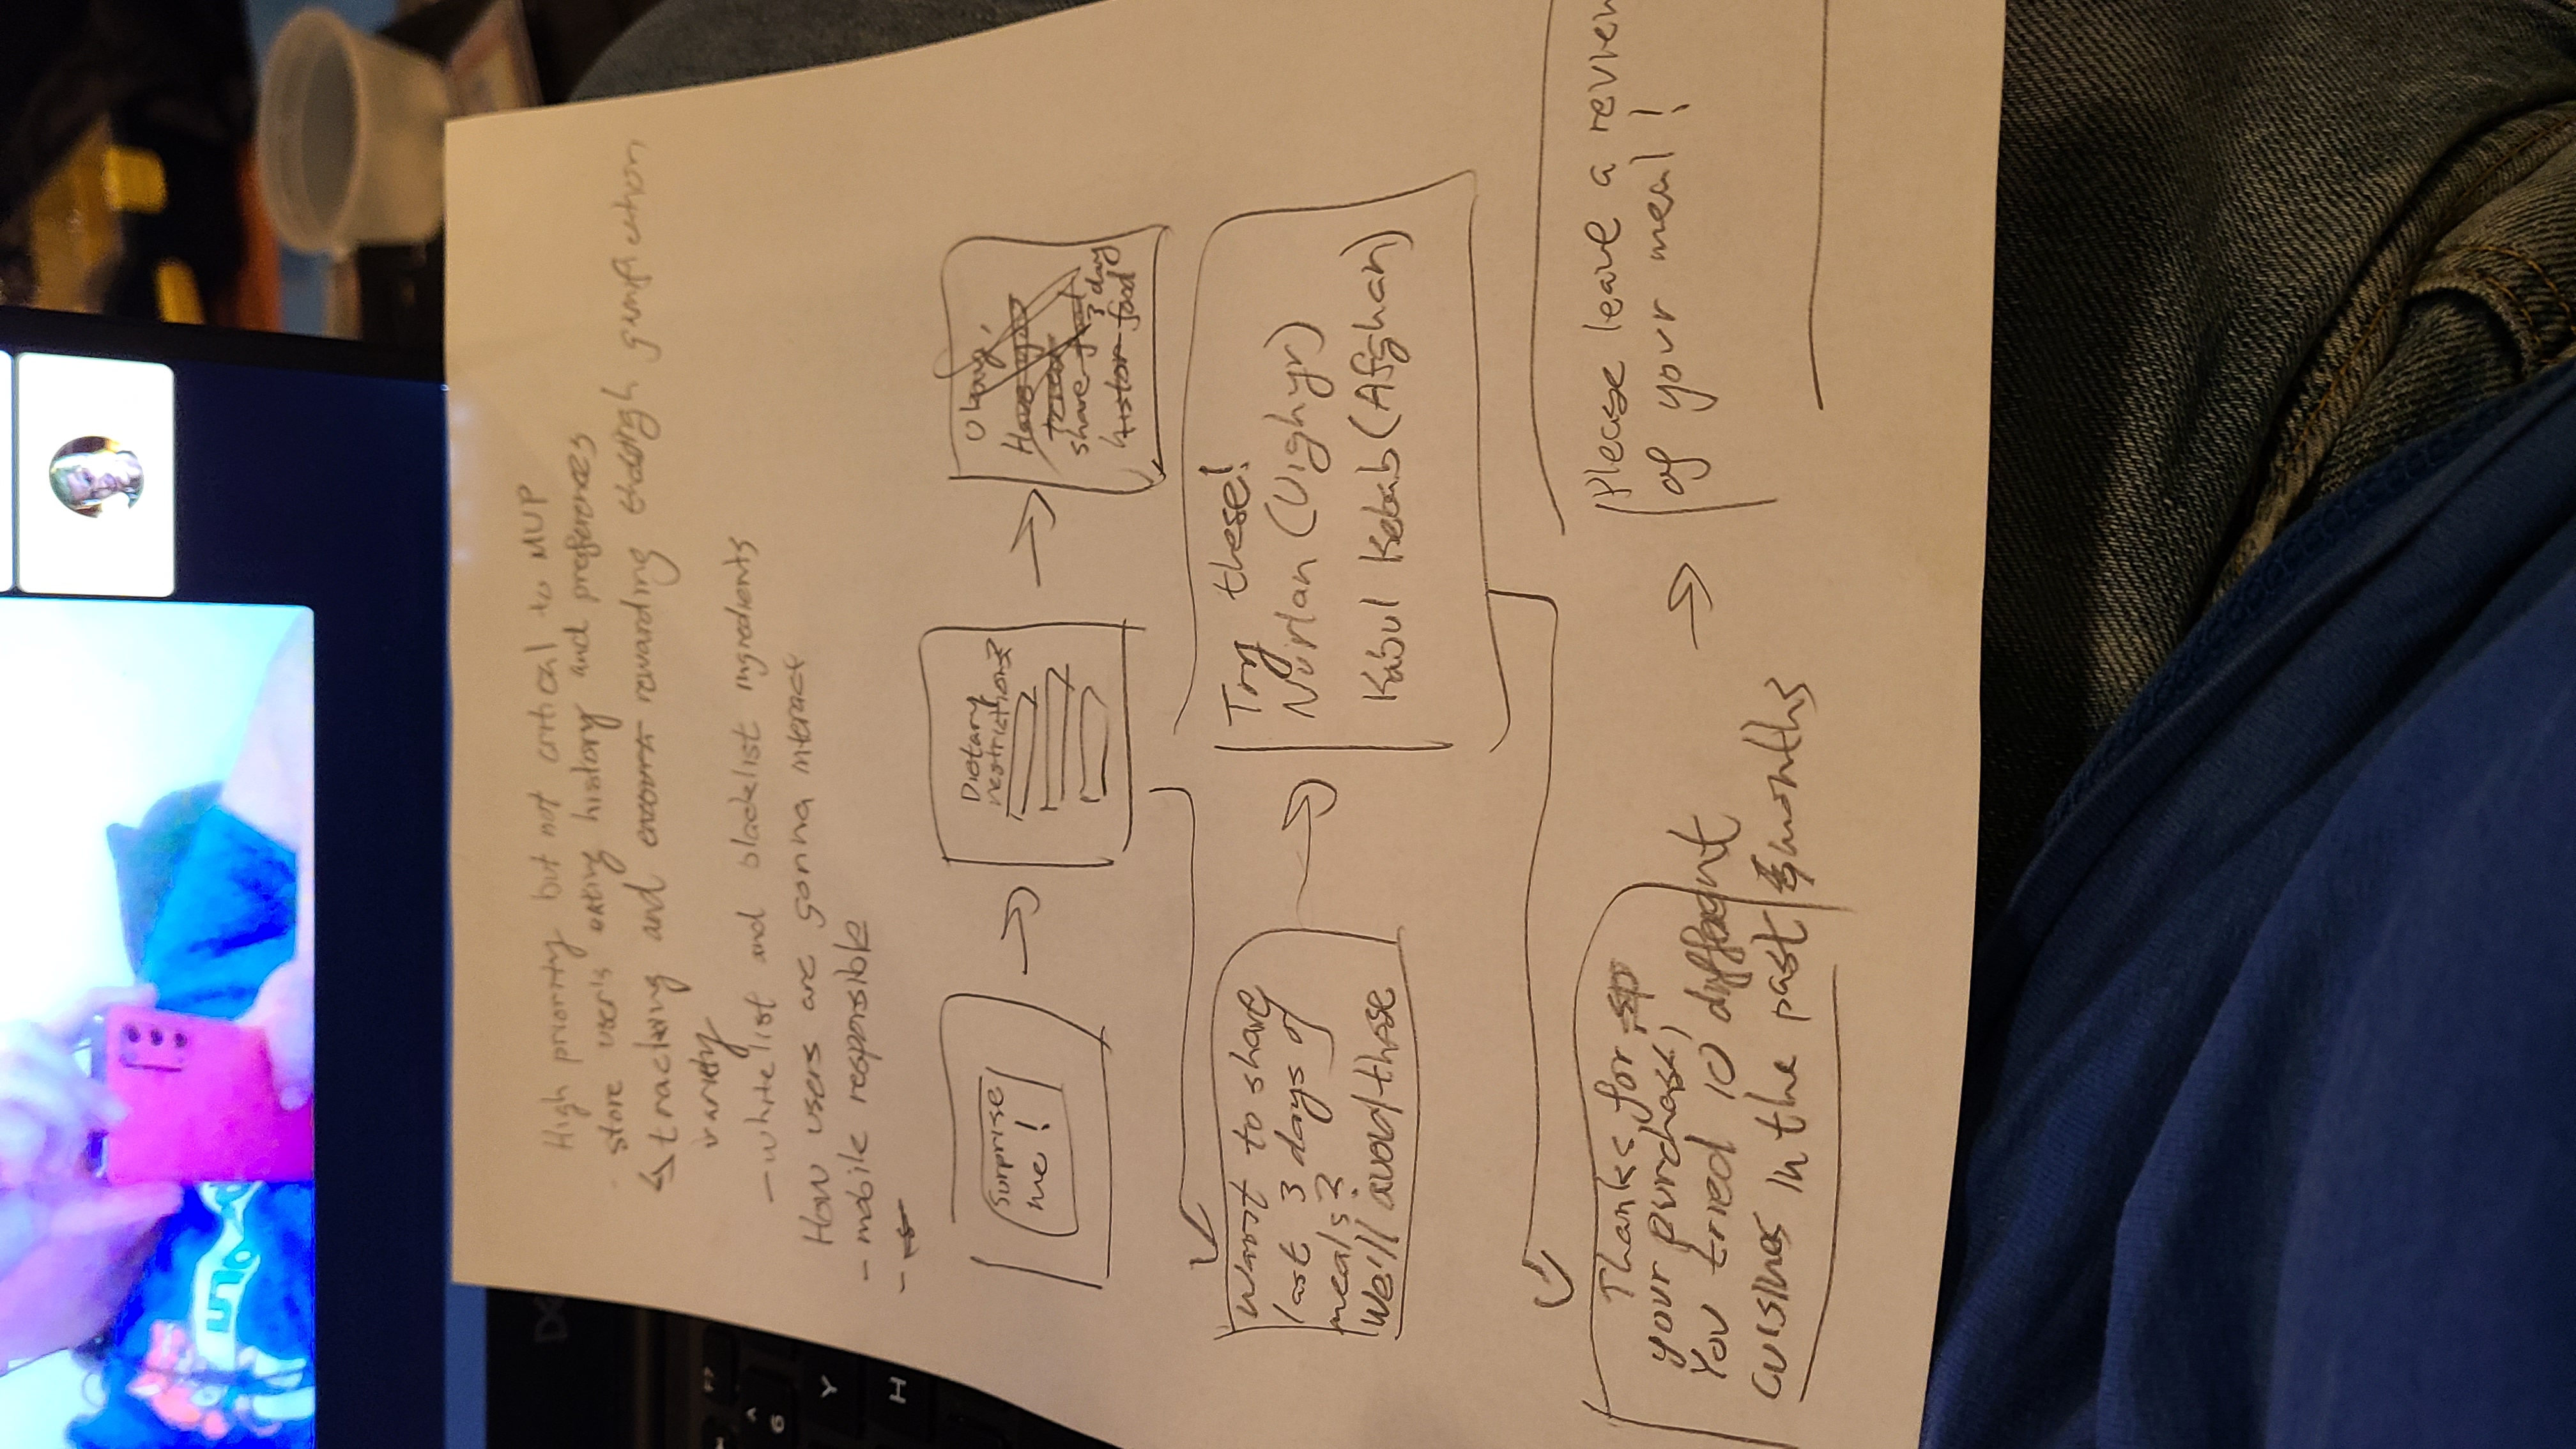 High priority but not critical to MVP
- store user's eating history and preferences
↳ tracking and encourt rewarding through gamification
variety
- whitelist and blacklist ingredients
How users are gonna interact
- mobile responsible
-
Surprise
me!
→
Dietary
restrictions?
→
Okay,
Have you
share food 3 day
histor food
Want to share
last 3 days of
meals?
We'll avoid those
→
Try these!
Nurlan (Uighyr)
Kabul Kebab (Afghan)
Thanks for sp
your purchase,
You tried 10 different
cuisines in the past months
→
Please leave a review
of your meal!
F7
^
6
Y
H